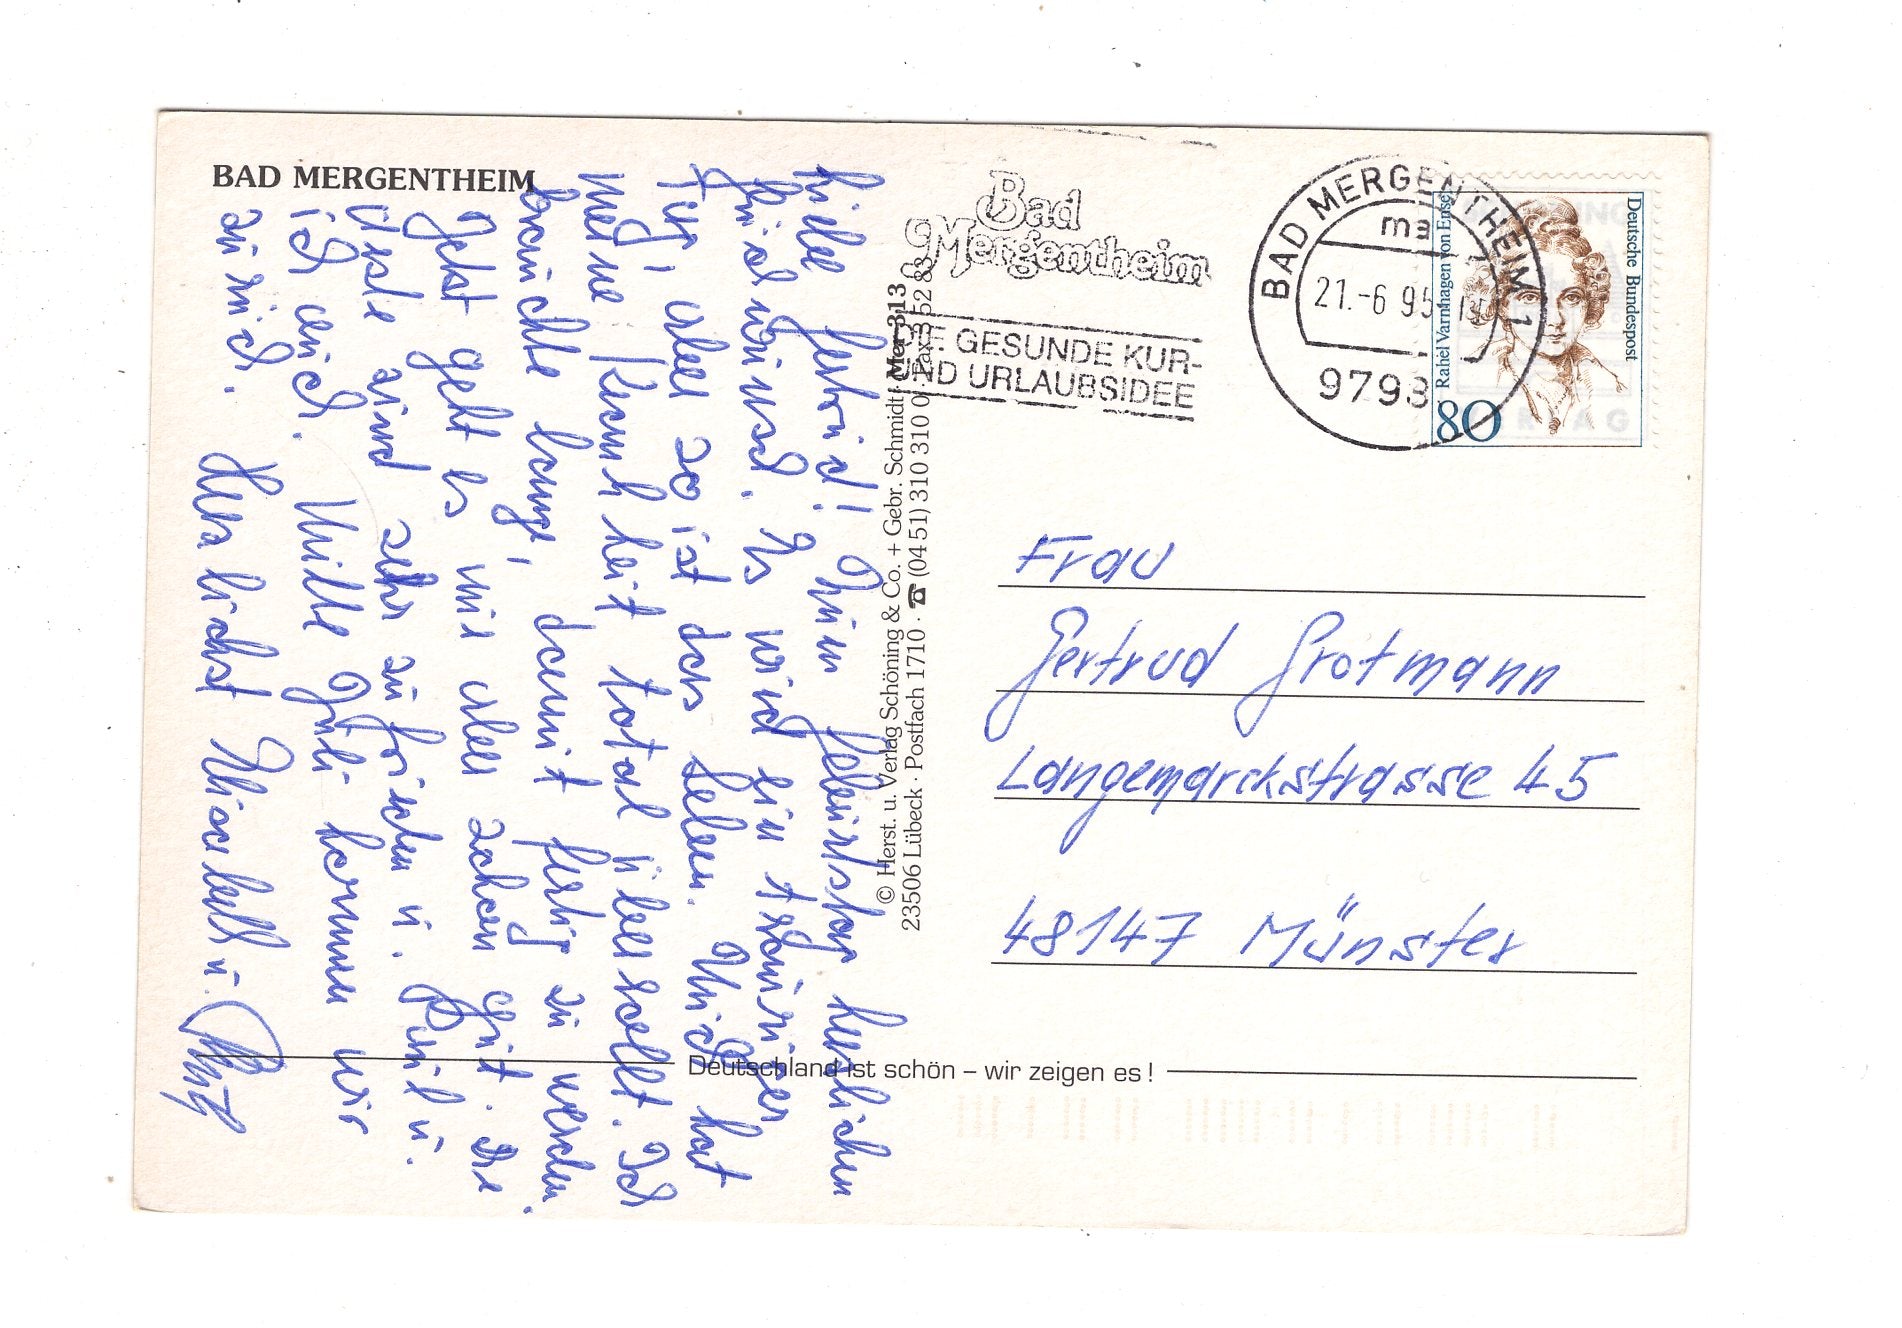 BAD MERGENTHEIM
Liebe Gertrud! Zum Geburtstag herzlichen
Glückwunsch. Es wird ein trauriger
Tag, aber so ist das Leben. Mich hat
meine Krankheit total überrollt. Ich
brauchte lange, damit fertig zu werden.
Jetzt geht es mir aber schon gut. Die
Ärzte sind sehr zufrieden u. Paul u.
ich auch. Mitte Juli kommen wir
zurück.
Herzlichst Elisabeth u.
© Herst. u. Verlag Schöning & Co. + Gebr. Schmidt · Mer 313
23506 Lübeck · Postfach 1710 · ☎ (04 51) 310 310 0 Fax 3 52 83
Bad
Mergentheim
DIE GESUNDE KUR-
UND URLAUBSIDEE
BAD MERGENTHEIM 1
ma
21.-6 95
9798
Deutsche Bundespost
Rahel Varnhagen von Ense
80
Frau
Gertrud Grotmann
Langemarckstrasse 45
48147 Münster
Deutschland ist schön – wir zeigen es!